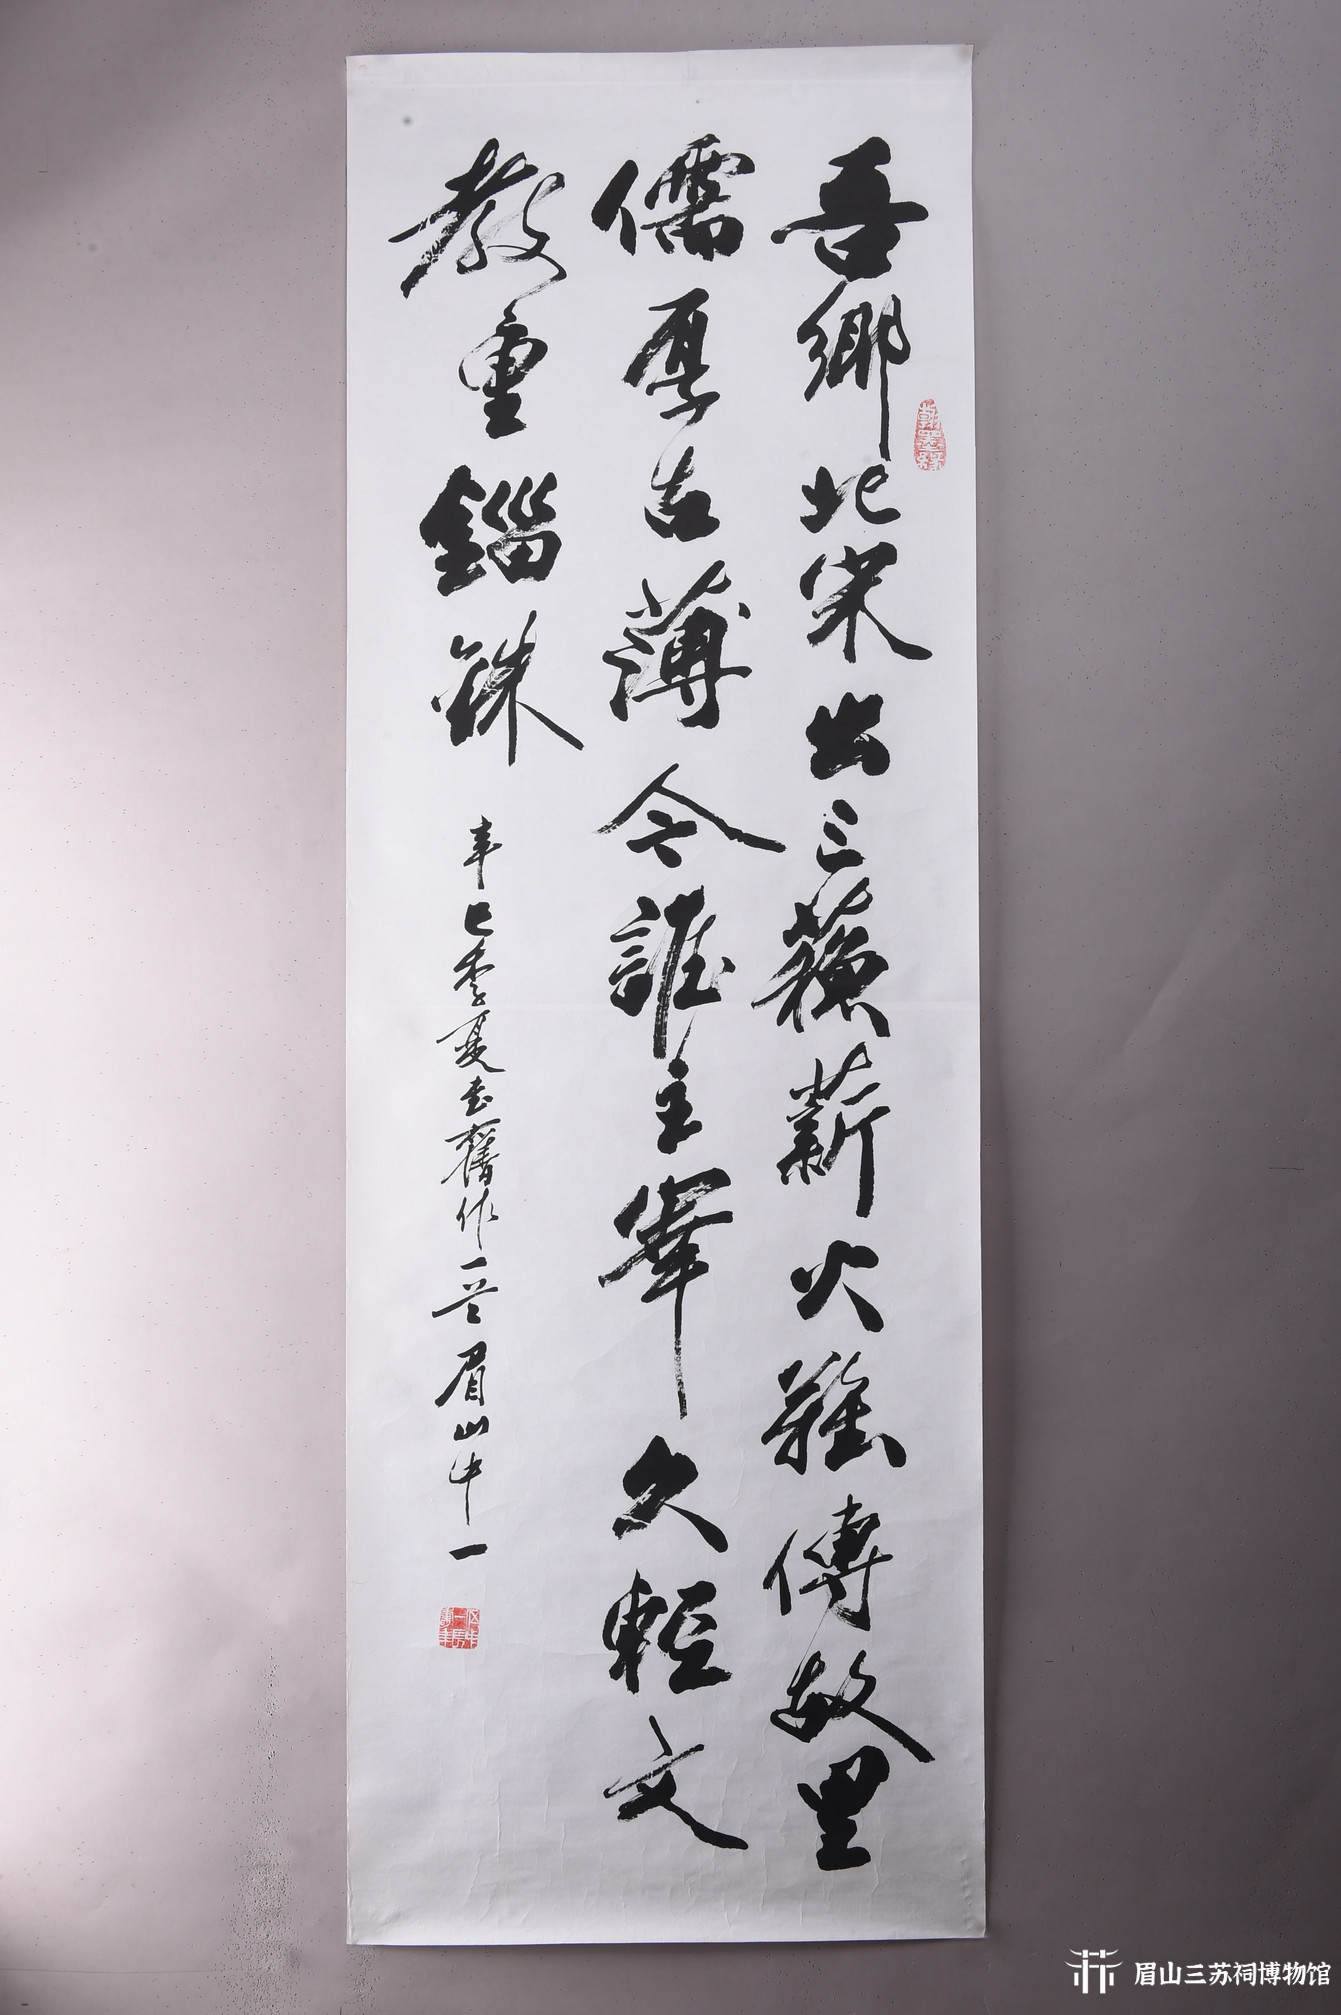 吾鄉北宋出三蘇薪火難傳故里
儒厚古薄今誰主宰久輕文
教重錙銖
辛巳季夏書舊作一首眉山牛一
翰墨緣
眉山三苏祠博物馆